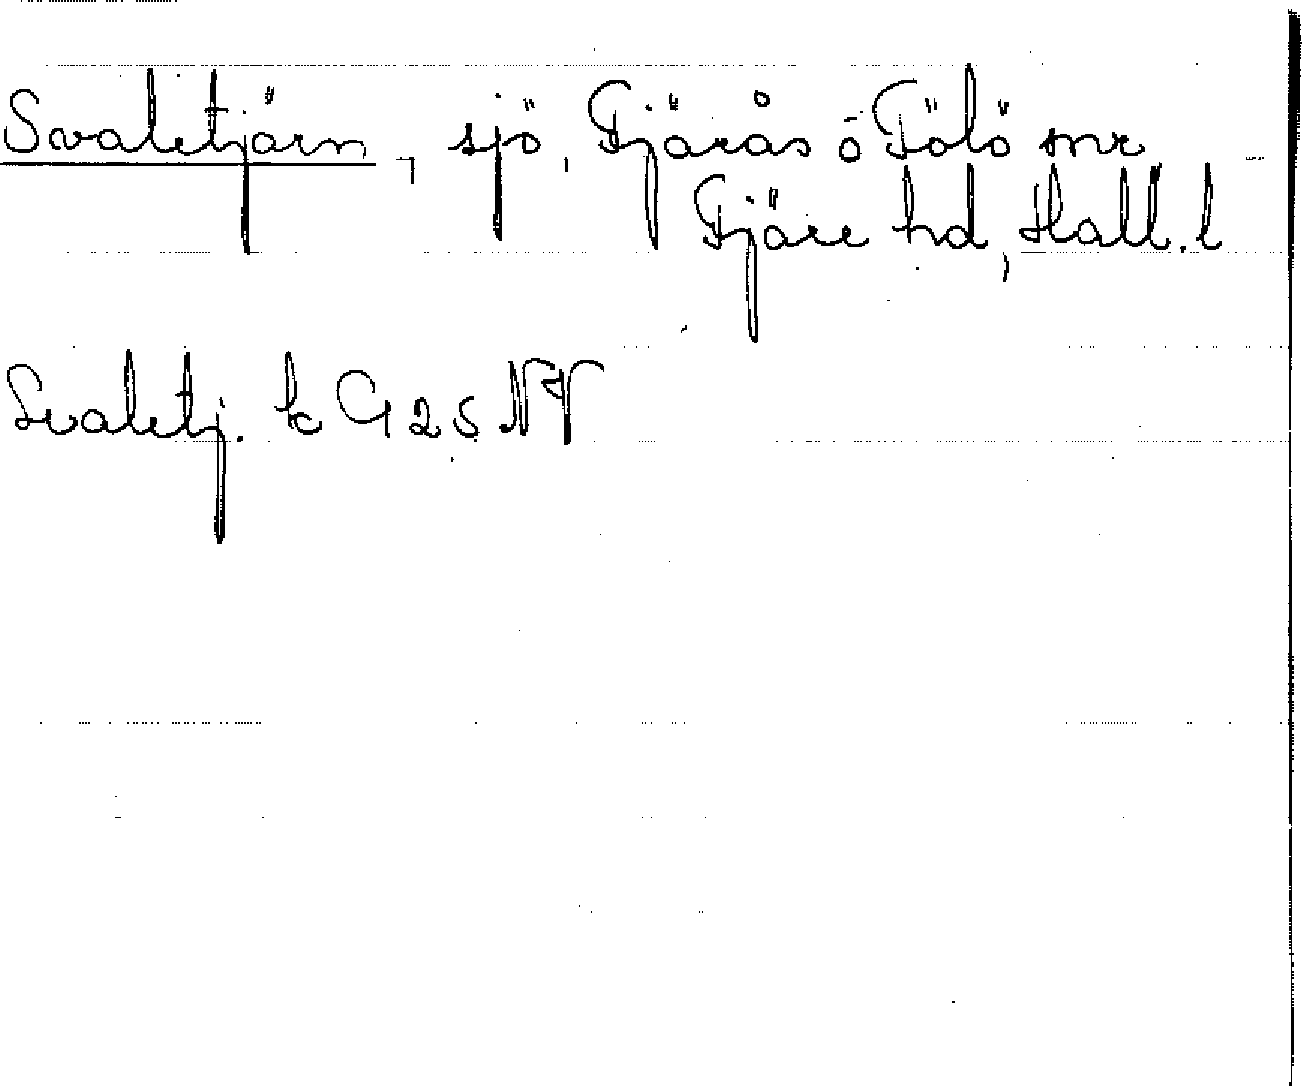 Svaletjärn, sjö, Fjärås o Fölö snr
Fjäre hd, Hall. l
Svaletj. k G 25 NV